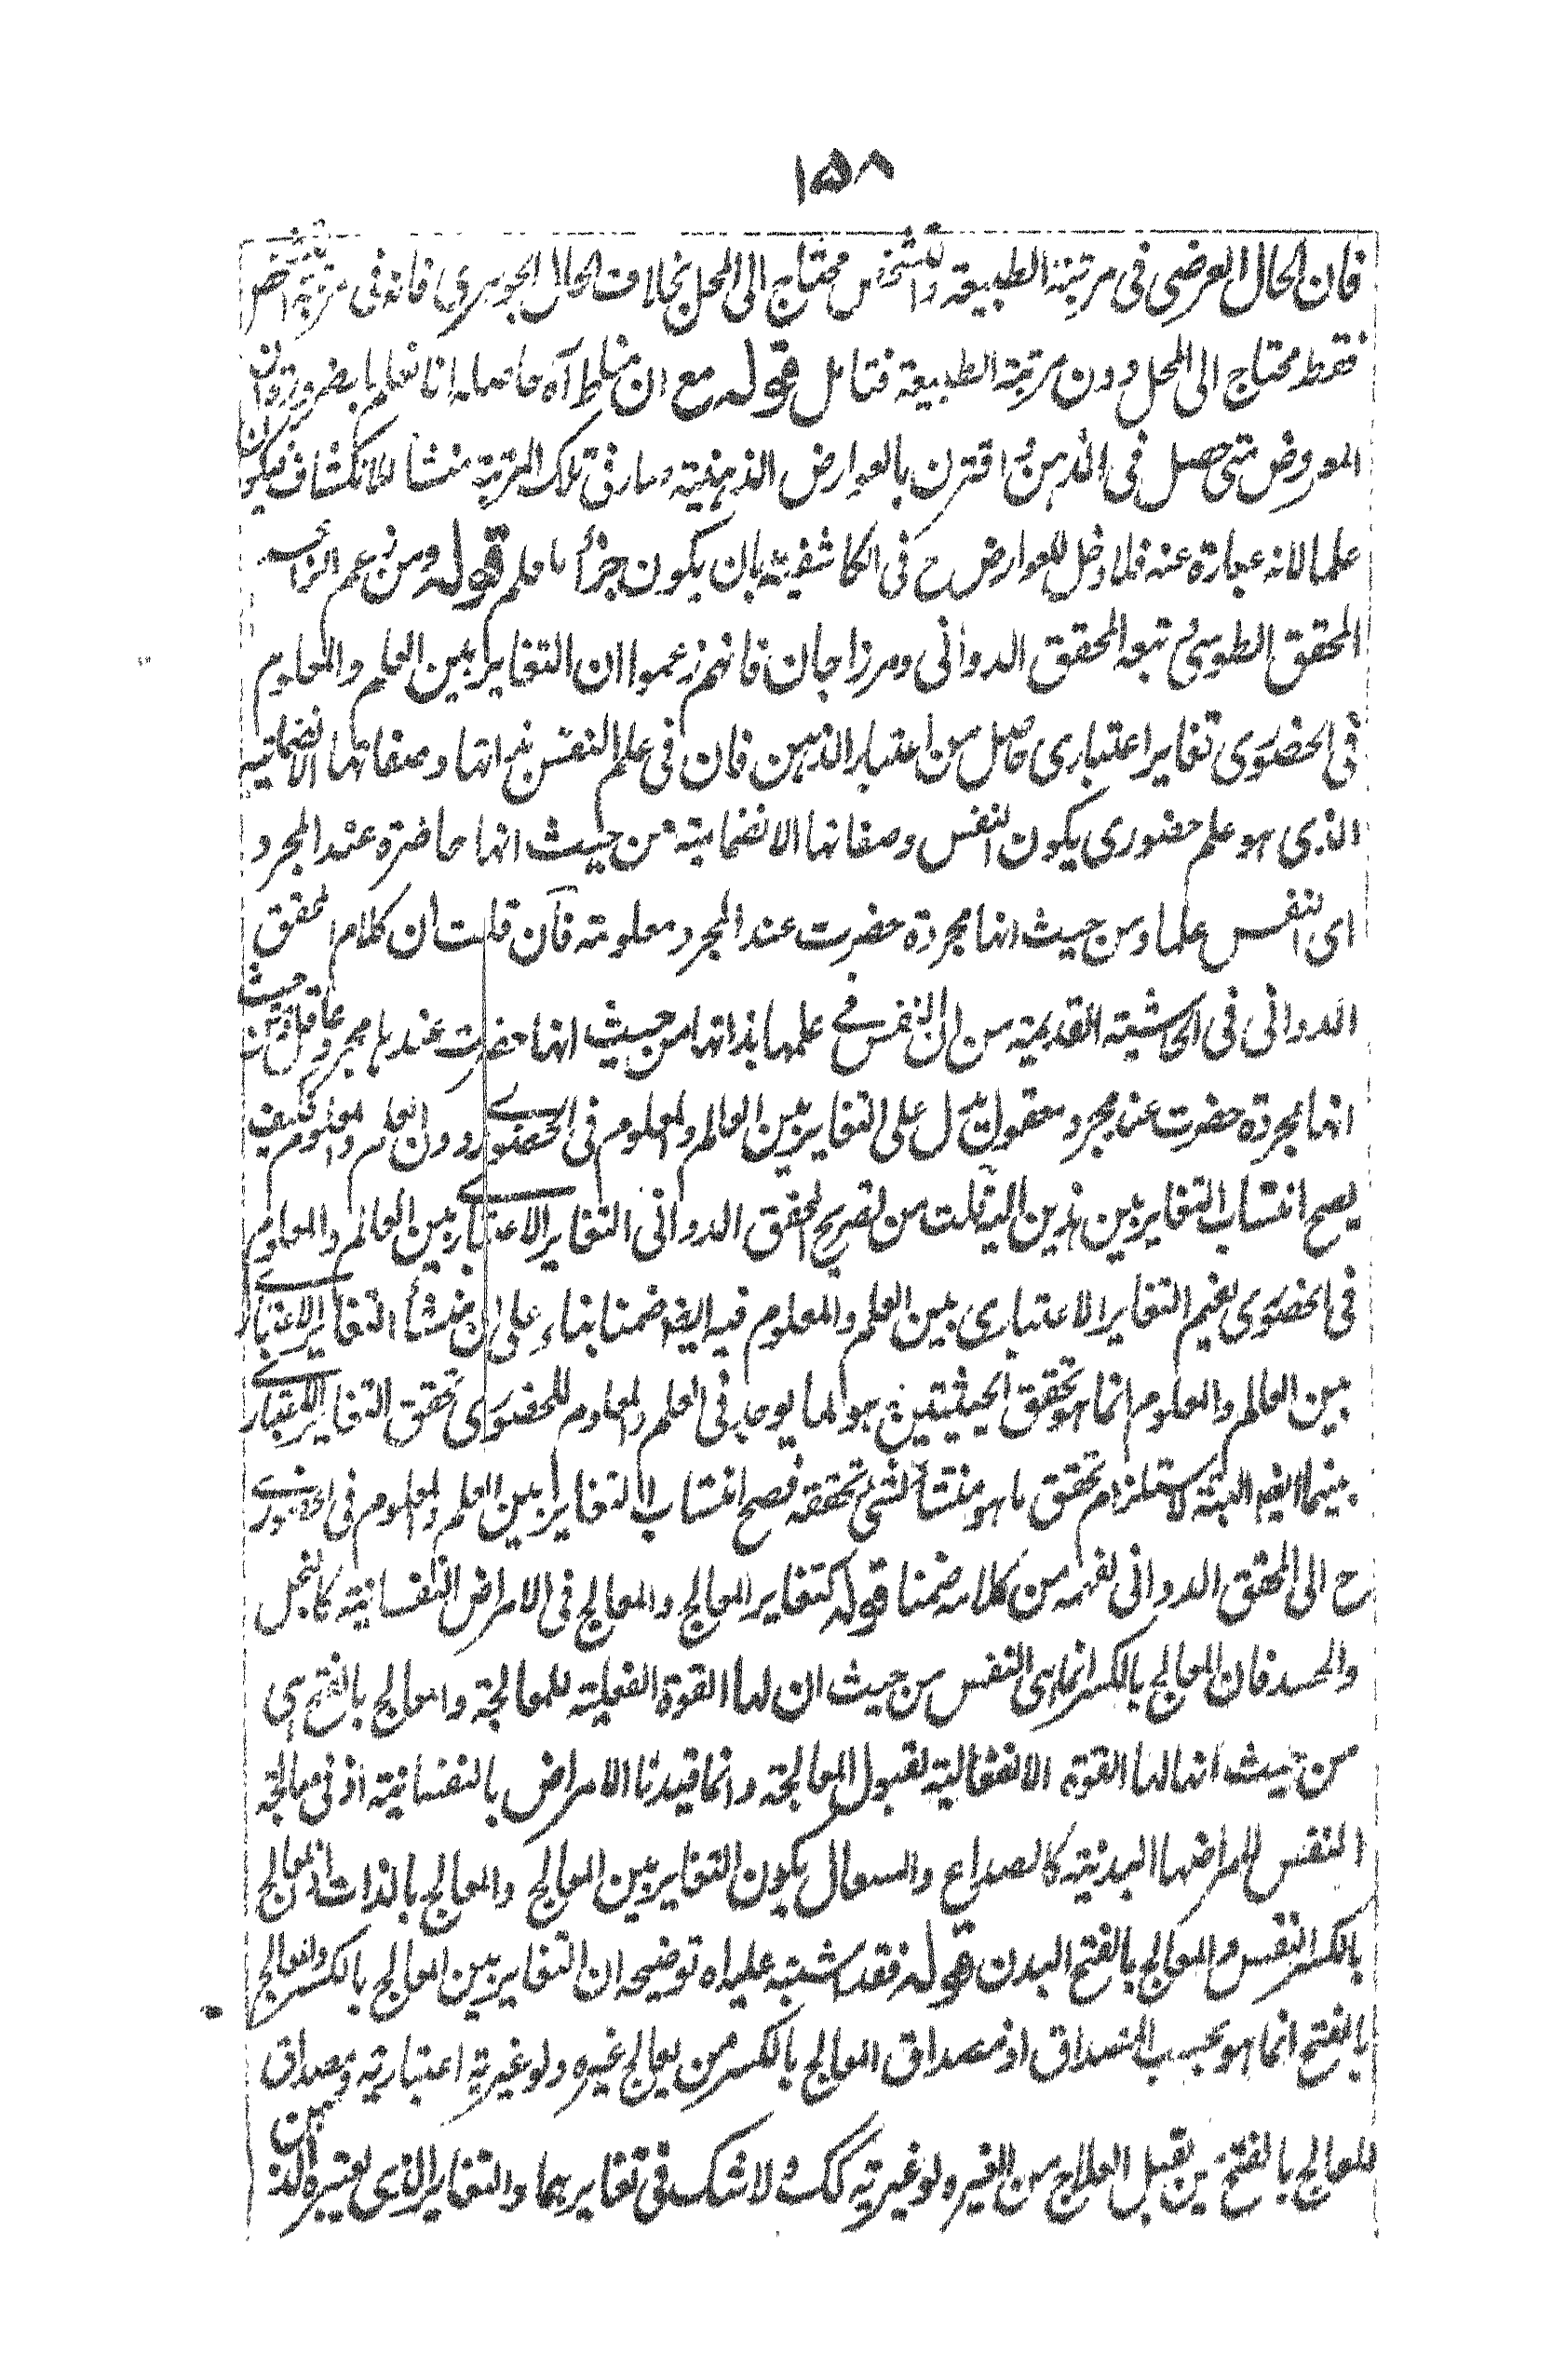 ١٥٨
فان الحال العرضى فى مرتبة الطبيعة والتشخص محتاج الى المحل بخلاف الحال الجوهرى فانه فى مرتبة التشخص
فقط محتاج الى المحل دون مرتبة الطبيعة فتامل قوله مع ان مناط آه حاصله انا نعلم بالضرورة ان
المعروض متى حصل فى الذهن اقترن بالعوارض الذهنية وصار فى تلك المرتبة منشأ للانكشاف فيكون
علما لانه عبارة عنه فلا دخل للعوارض ح فى الكاشفية بان يكون جزأ ما فلم قوله ومن زعم الزاعم
المحقق الطوسى و تبعه المحقق الدوانى ومرزا جان فانهم زعموا ان التغاير بين العلم والمعلوم
فى الحضورى تغاير اعتبارى حاصل من اعتبار الذهن فان فى علم النفس بذاتها وصفاتها الانضمامية
الذى هو علم حضورى يكون النفس وصفاتها الانضمامية من حيث انها حاضرة عند المجرد
اى النفس علما ومن حيث انها مجردة حضرت عند المجرد معلومة فآن قلت ان كلام المحقق
الدوانى فى الحاشية القديمة من ان النفس فى علمها بذاتها من حيث انها حضرت عندها مجرد عاقل ومن حيث
انها مجردة حضرت عند مجرد معقول يدل على التغاير بين العالم والمعلوم فى الحضورى دون العلم والمعلوم فكيف
يصح انتساب التغاير بين هذين اليه قلت من تصريح المحقق الدوانى التغاير الاعتبارى بين العالم والمعلوم
فى الحضورى يفهم التغاير الاعتبارى بين العلم والمعلوم فيه ايضا ضمنا بناء على ان منشأ التغاير الاعتبارى
بين العالم والمعلوم انما هو تحقق الحيثيتين و هو لما يوجد فى العلم والمعلوم للحضورى تحقق التغاير الاعتبارى
بينهما ايضا البتة لاستلزام تحقق ما هو منشأ لشئ تحققه فصح انتساب التغاير بين العلم والمعلوم فى الحضورى
ح الى المحقق الدوانى لفهمه من كلامه ضمنا قوله كتغاير المعالج والمعالج فى الامراض النفسانية كالبخل
والحسد فان المعالج بالكسر انما هى النفس من حيث ان لها القوة الفعلية للمعالجة والمعالج بالفتح هى
من حيث انها لها القوة الانفعالية لقبول المعالجة وانما قيدنا الامراض بالنفسانية اذ فى معالجة
النفس لامراضها البدنية كالصداع والسعال يكون التغاير بين المعالج والمعالج بالذات اذ المعالج
بالكسر النفس و المعالج بالفتح البدن قوله فقد اشتبه عليه اه توضيحه ان التغاير بين المعالج بالكسر والمعالج
بالفتح انما هو بحسب المصداق اذ مصداق المعالج بالكسر من يعالج غيره ولو غيرية اعتبارية ومصداق
للمعالج بالفتح من يقبل العلاج من الغير ولو غيرية كك ولا شك فى تغايرهما والتغاير الذى يعتبره الذهن